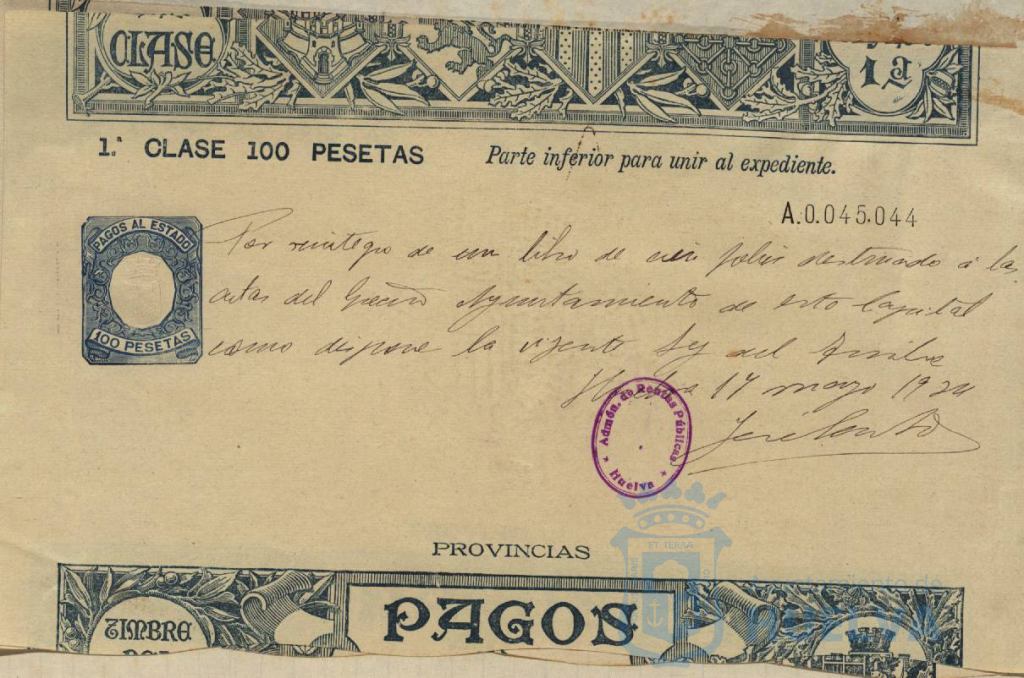 CLASE
1ª
1.ª CLASE 100 PESETAS
Parte inferior para unir al expediente.
A.0.045.044
PAGOS AL ESTADO
100 PESETAS
Por reintegro de un libro de cien folios destinado á las
actas del Ayuntamiento de esta Capital
como dispone la vigente Ley del Timbre
17 mayo 1924
Admón. de Rentas Públicas
Huelva
PROVINCIAS
ET TERRA
Ayuntamiento de
HUELVA
TIMBRE
PAGOS